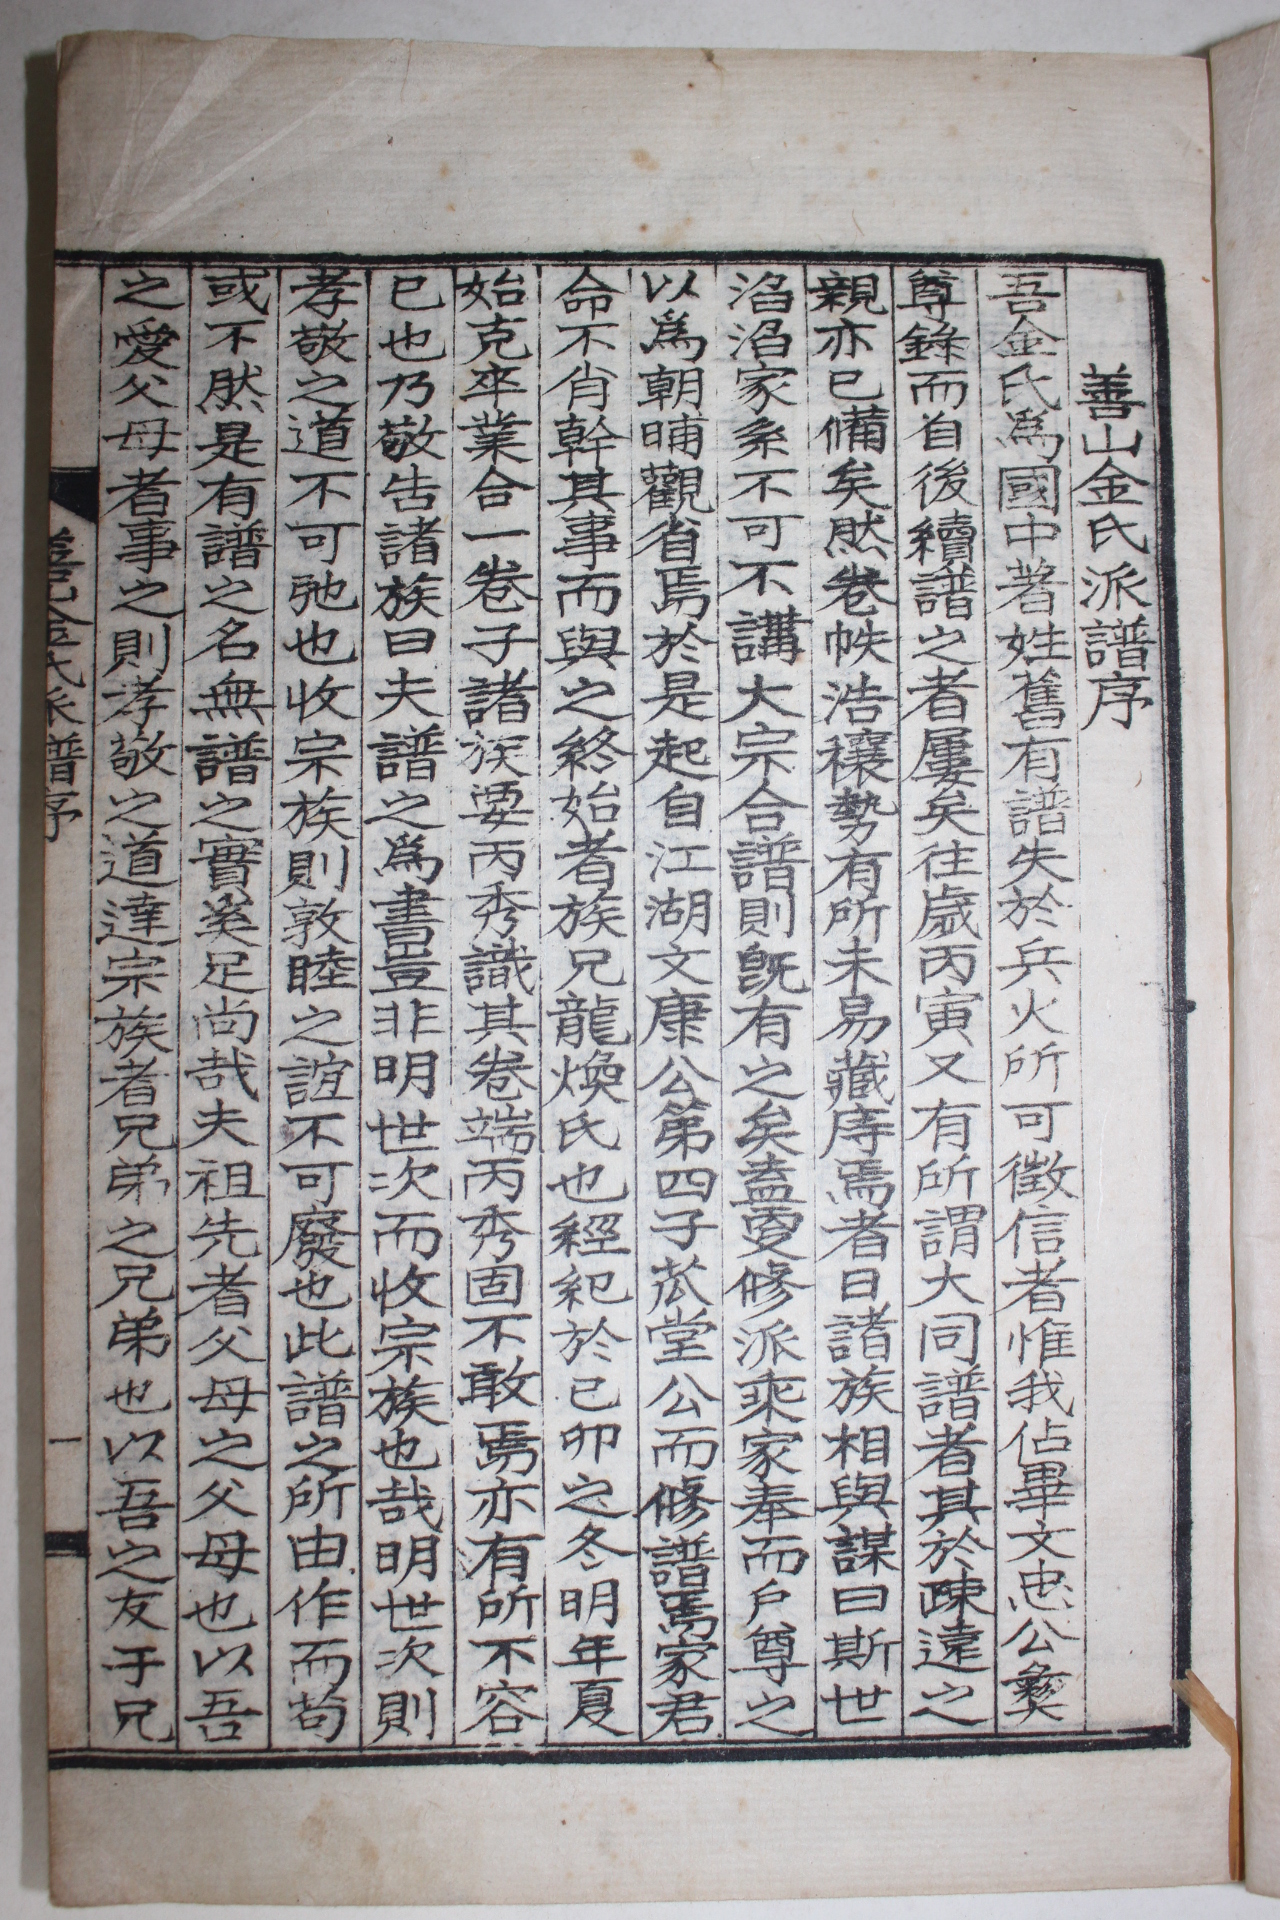 善山金氏派譜序
吾金氏爲國中著姓舊有譜失於兵火所可徵信者惟我佔畢文忠公彜
尊錄而自後續譜之者屢矣往歲丙寅又有所謂大同譜者其於疎遠之
親亦已備矣然卷帙浩穰勢有所未易藏庤焉者日諸族相與謀曰斯世
滔滔家系不可不講大宗合譜則旣有之矣盍更修派乘家奉而戶尊之
以爲朝晡觀省焉於是起自江湖文康公第四子苽堂公而修譜焉家君
命不肖幹其事而與之終始者族兄龍煥氏也經紀於己卯之冬明年夏
始克卒業合一卷子諸族要丙秀識其卷端丙秀固不敢焉亦有所不容
已也乃敬告諸族曰夫譜之爲書豈非明世次而收宗族也哉明世次則
孝敬之道不可弛也收宗族則敦睦之誼不可廢也此譜之所由作而苟
或不然是有譜之名無譜之實奚足尚哉夫祖先者父母之父母也以吾
之愛父母者事之則孝敬之道達宗族者兄弟之兄弟也以吾之友于兄
善山金氏派譜序
一